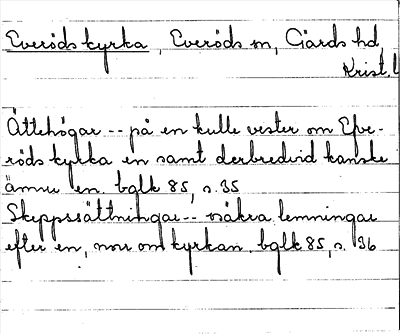 Everöds kyrka, Everöds sn, Gärds hd,
Krist. l
Ättehögar -- på en kulle vester om Efve-
röds kyrka en samt derbredvid kanske
ännu en. bglk 85, s. 35
Skeppssättningar -- osäkra lemningar
efter en, norr om kyrkan. bglk 85, s. 36